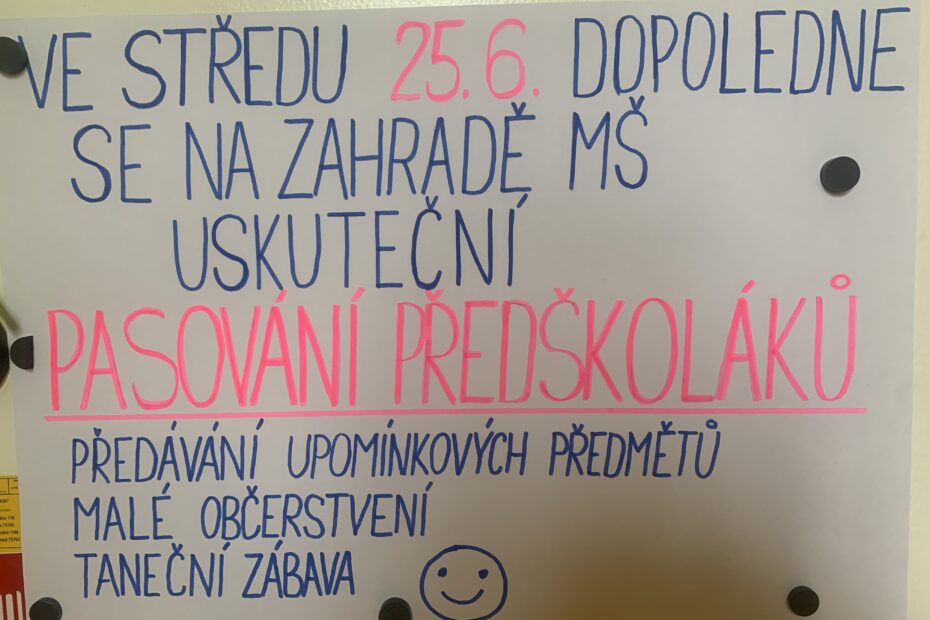 VE STŘEDU 25.6. DOPOLEDNE
SE NA ZAHRADĚ MŠ
USKUTEČNÍ
PASOVÁNÍ PŘEDŠKOLÁKŮ
PŘEDÁVÁNÍ UPOMÍNKOVÝCH PŘEDMĚTŮ
MALÉ OBČERSTVENÍ
TANEČNÍ ZÁBAVA